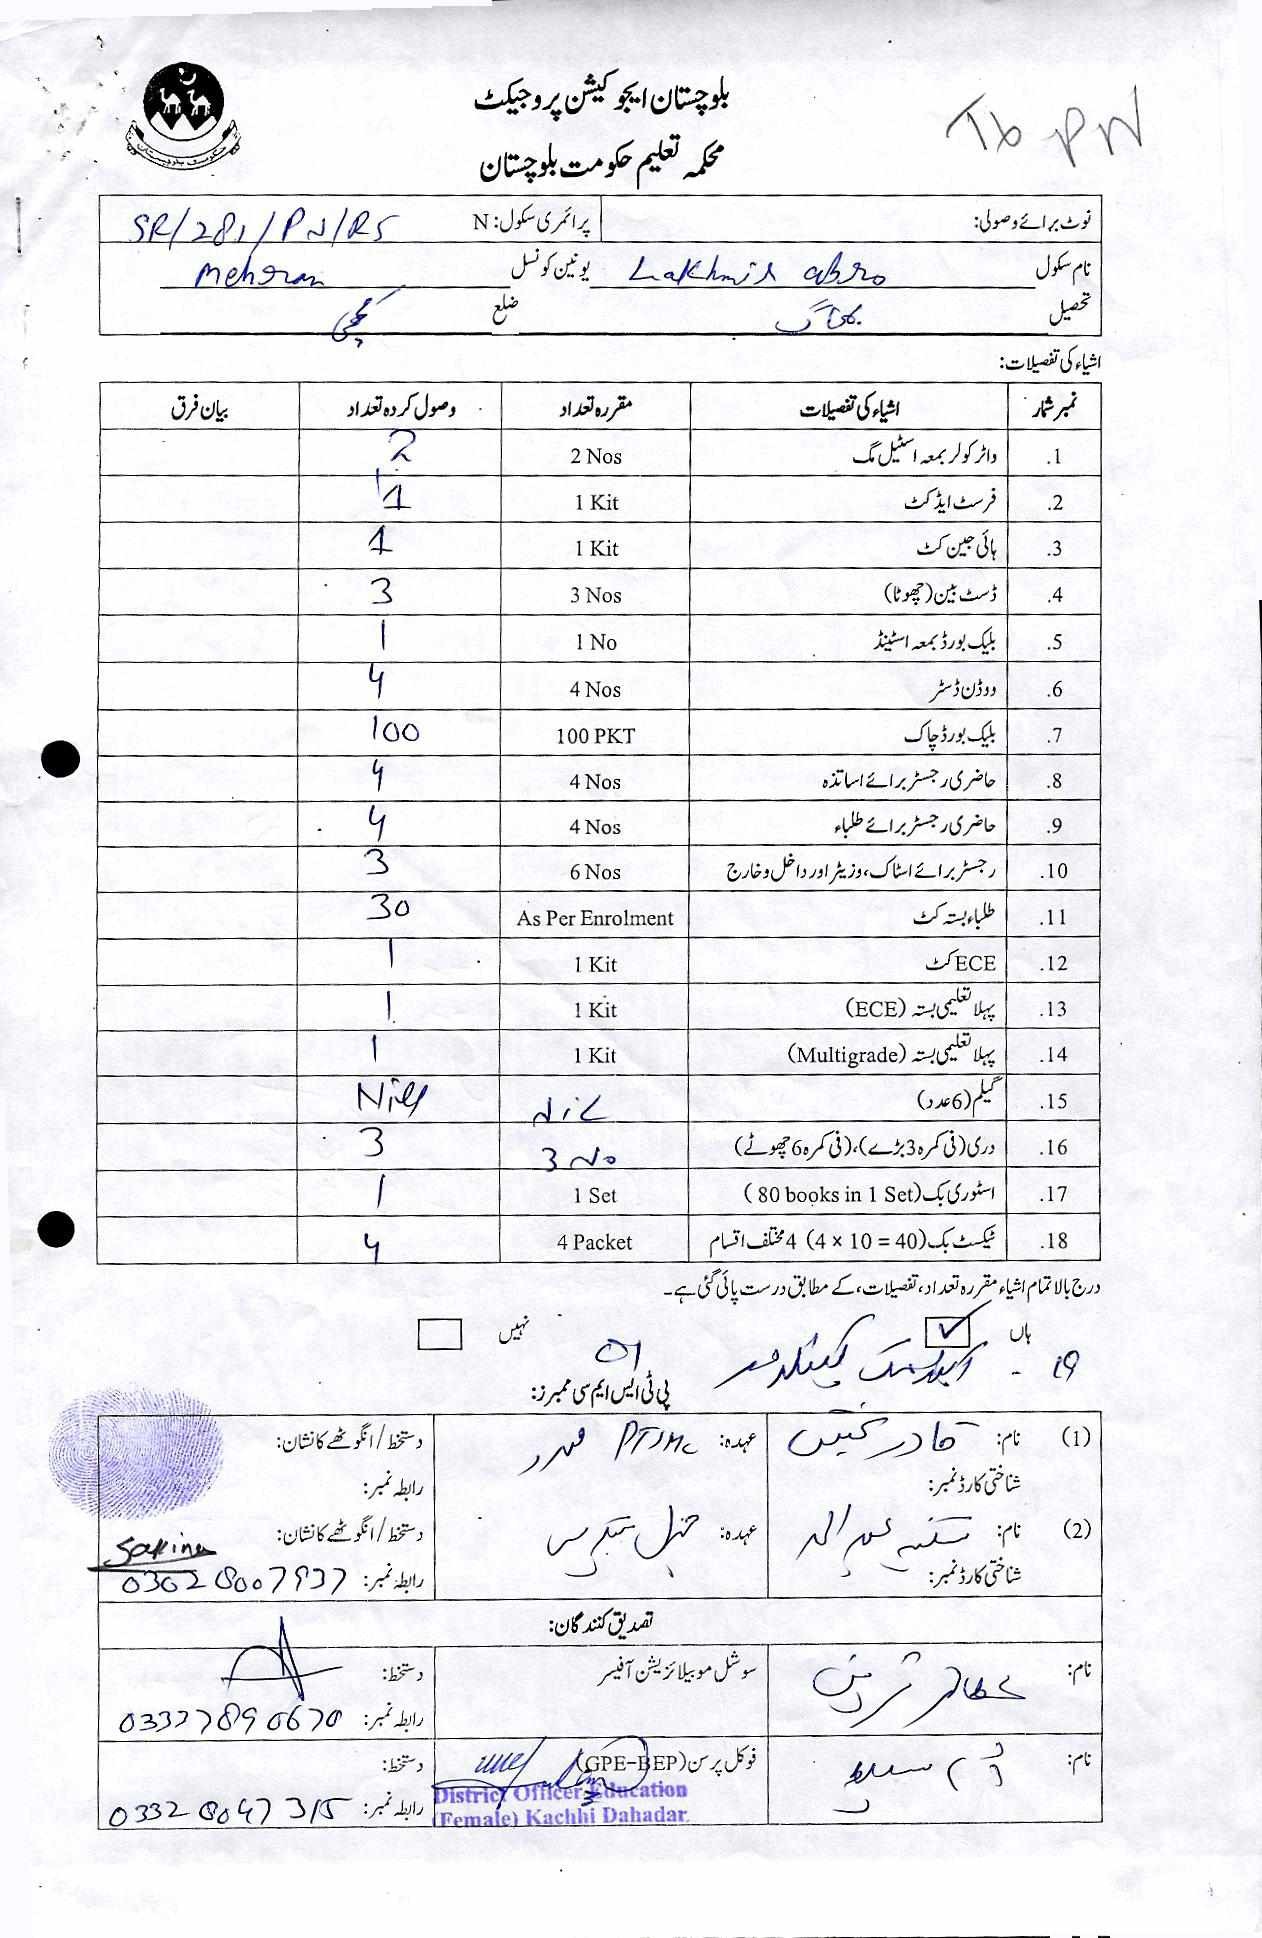 بلوچستان ایجوکیشن پروجیکٹ
Tb PN
محکمہ تعلیم حکومت بلوچستان
حکومت بلوچستان
نوٹ برائے وصولی: پرائمری سکول: N SR/281/PN/RS
نام سکول Lakhmir abro یونین کونسل Mehran
تحصیل بھاگ ضلع کچھی
اشیاء کی تفصیلات:
نمبر شمار اشیاء کی تفصیلات مقررہ تعداد وصول کردہ تعداد بیان فرق
.1 واٹر کولر بمعہ اسٹیل مگ 2 Nos 2
.2 فرسٹ ایڈ کٹ 1 Kit 1
.3 ہائی جین کٹ 1 Kit 1
.4 ڈسٹ بین (چھوٹا) 3 Nos 3
.5 بلیک بورڈ بمعہ اسٹینڈ 1 No 1
.6 ووڈن ڈسٹر 4 Nos 4
.7 بلیک بورڈ چاک 100 PKT 100
.8 حاضری رجسٹر برائے اساتذہ 4 Nos 4
.9 حاضری رجسٹر برائے طلباء 4 Nos 4
.10 رجسٹر برائے اسٹاک، وزیٹر اور داخل و خارج 6 Nos 3
.11 طلباء بستہ کٹ As Per Enrolment 30
.12 ECE کٹ 1 Kit 1
.13 پہلا تعلیمی بستہ (ECE) 1 Kit 1
.14 پہلا تعلیمی بستہ (Multigrade) 1 Kit 1
.15 گیلم (6 عدد) Nil Nill
.16 دری (فی کمرہ 3 بڑے)، (فی کمرہ 6 چھوٹے) 3 No 3
.17 اسٹوری بک (80 books in 1 Set) 1 Set 1
.18 ٹیکسٹ بک (4 × 10 = 40) 4 مختلف اقسام 4 Packet 4
درج بالا تمام اشیاء مقررہ تعداد، تفصیلات، کے مطابق درست پائی گئی ہے۔
ہاں ✓ نہیں
19 - 01
پی ٹی ایس ایم سی ممبرز:
(1) نام: قادر بخش عہدہ: PTSMC صدر دستخط / انگوٹھے کا نشان:
شناختی کارڈ نمبر: رابطہ نمبر:
(2) نام: سکینہ عہدہ: جنرل سیکرٹری دستخط / انگوٹھے کا نشان: Sakina
شناختی کارڈ نمبر: رابطہ نمبر: 03028007937
تصدیق کنندگان:
نام: سوشل موبیلائزیشن آفیسر دستخط:
رابطہ نمبر: 03337890670
نام: فوکل پرسن (GPE-BEP) دستخط:
رابطہ نمبر: 03328047315
District Officer Education
(Female) Kachhi Dahadar.